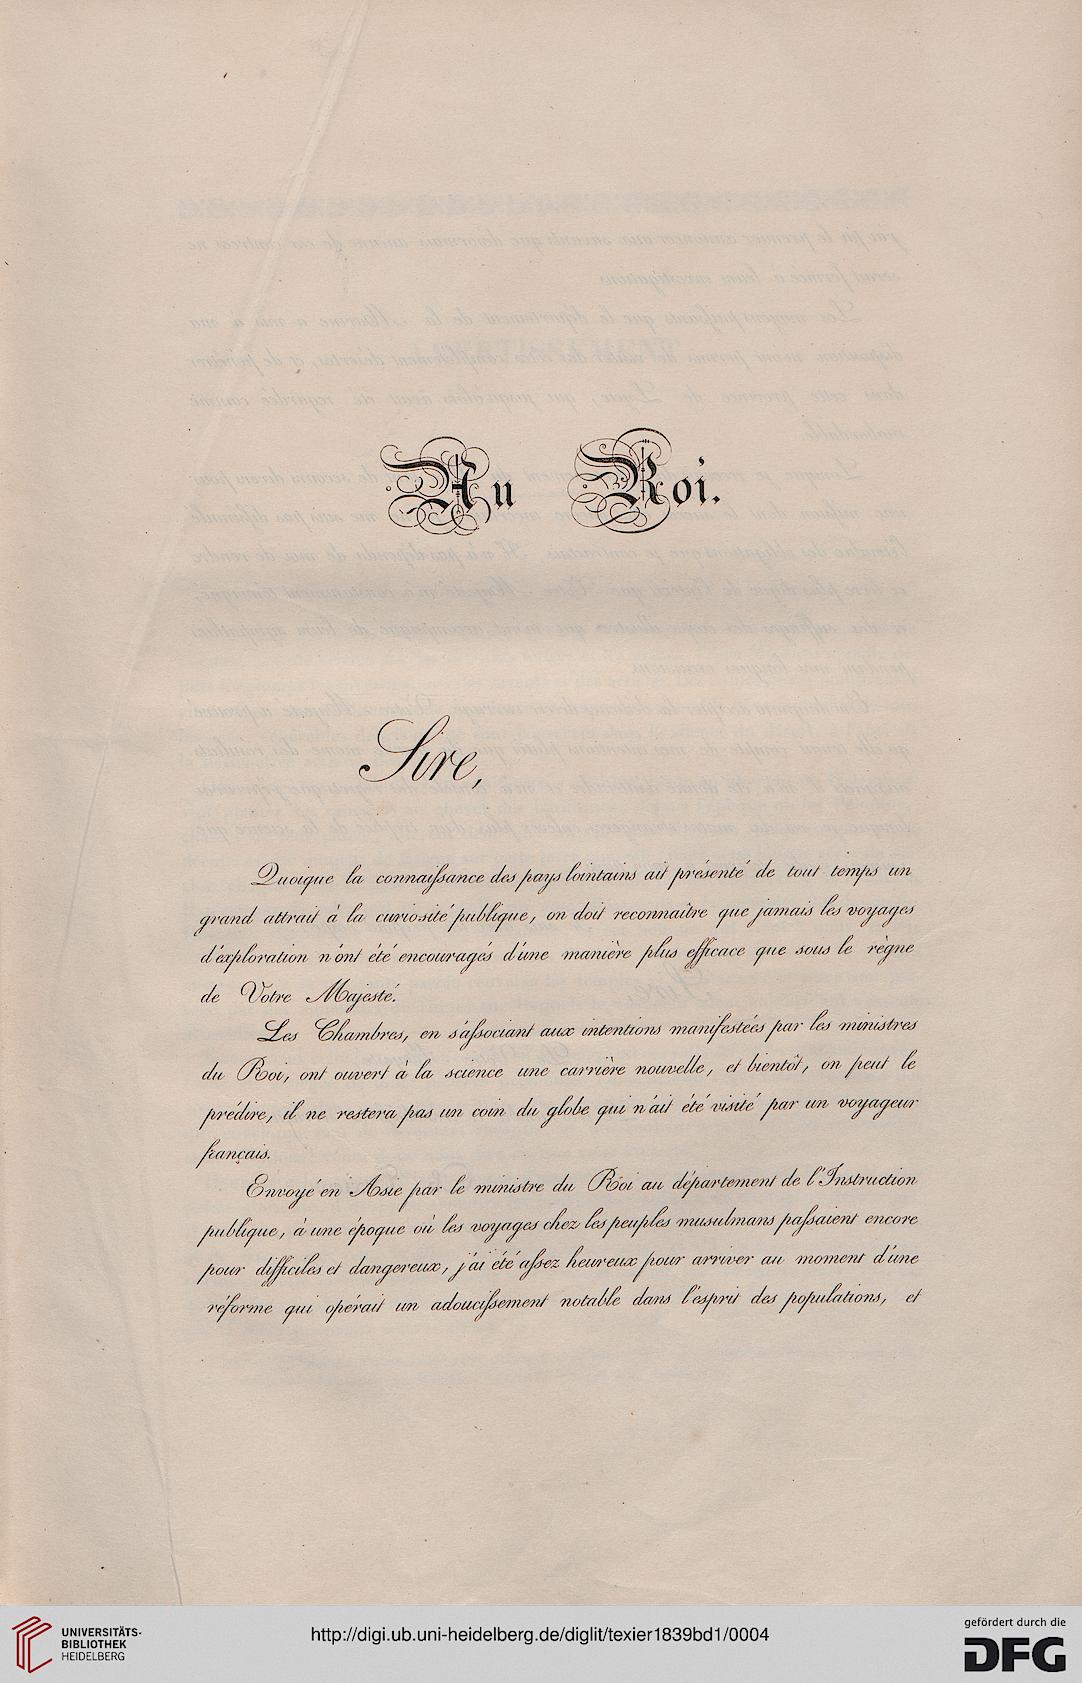 Au Roi.
Sire,
Quoique la connaissance des pays lointains ait présenté de tout temps un
grand attrait à la curiosité publique, on doit reconnaître que jamais les voyages
d'exploration n'ont été encouragés d'une manière plus efficace que sous le règne
de Votre Majesté.
Les Chambres, en s'associant aux intentions manifestées par les ministres
du Roi, ont ouvert à la science une carrière nouvelle, et bientôt, on peut le
prédire, il ne restera pas un coin du globe qui n'ait été visité par un voyageur
français.
Envoyé en Asie par le ministre du Roi au département de l'Instruction
publique, à une époque où les voyages chez les peuples musulmans passaient encore
pour difficiles et dangereux, j'ai été assez heureux pour arriver au moment d'une
réforme qui opérait un adoucissement notable dans l'esprit des populations, et
UNIVERSITÄTS-
BIBLIOTHEK
HEIDELBERG
http://digi.ub.uni-heidelberg.de/diglit/texier1839bd1/0004
gefördert durch die
DFG